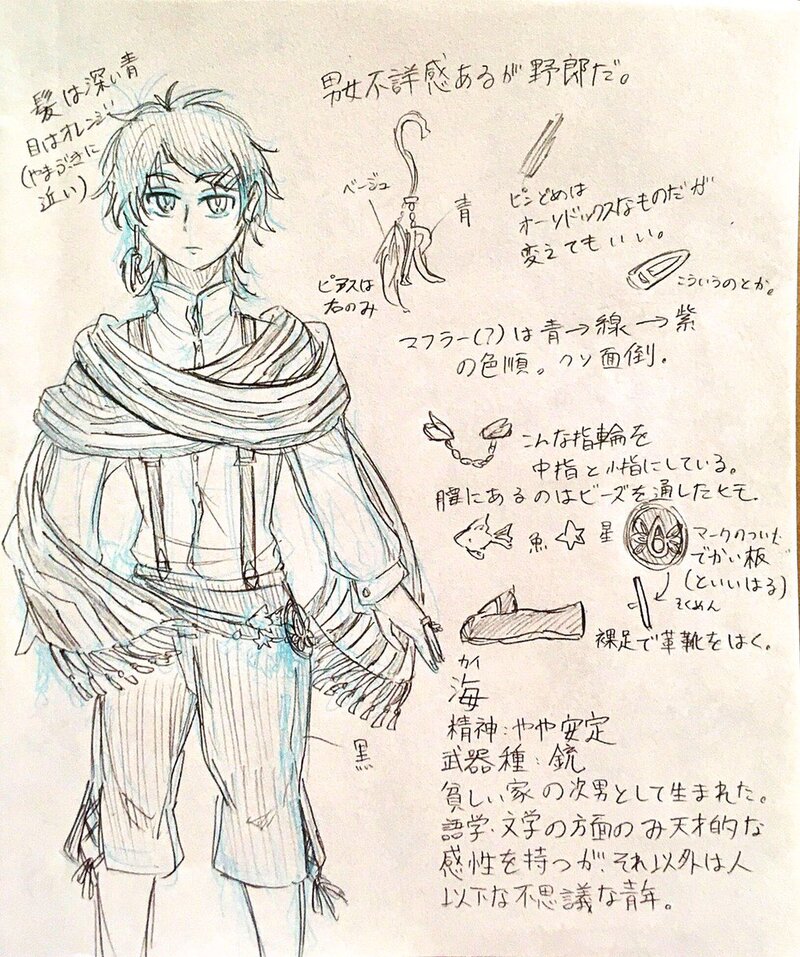 髪は深い青
目はオレンジ
(やまぶきに
近い)
男女不詳感あるが野郎だ。
ベージュ
青
ピアスは
右のみ
ピンどめは
オーソドックスなものだが
変えてもいい。
こういうのとか。
マフラー(?)は青→線→紫
の色順。クソ面倒.
こんな指輪を
中指と小指にしている。
腰にあるのはビーズを通したヒモ.
魚
星
マークのついた
でかい板
(といいはる)
そくめん
裸足で革靴をはく。
黒
カイ
海
精神:やや安定
武器種:銃
貧しい家の次男として生まれた。
語学・文学の方面のみ天才的な
感性を持つが、それ以外は人
以下な不思議な青年。